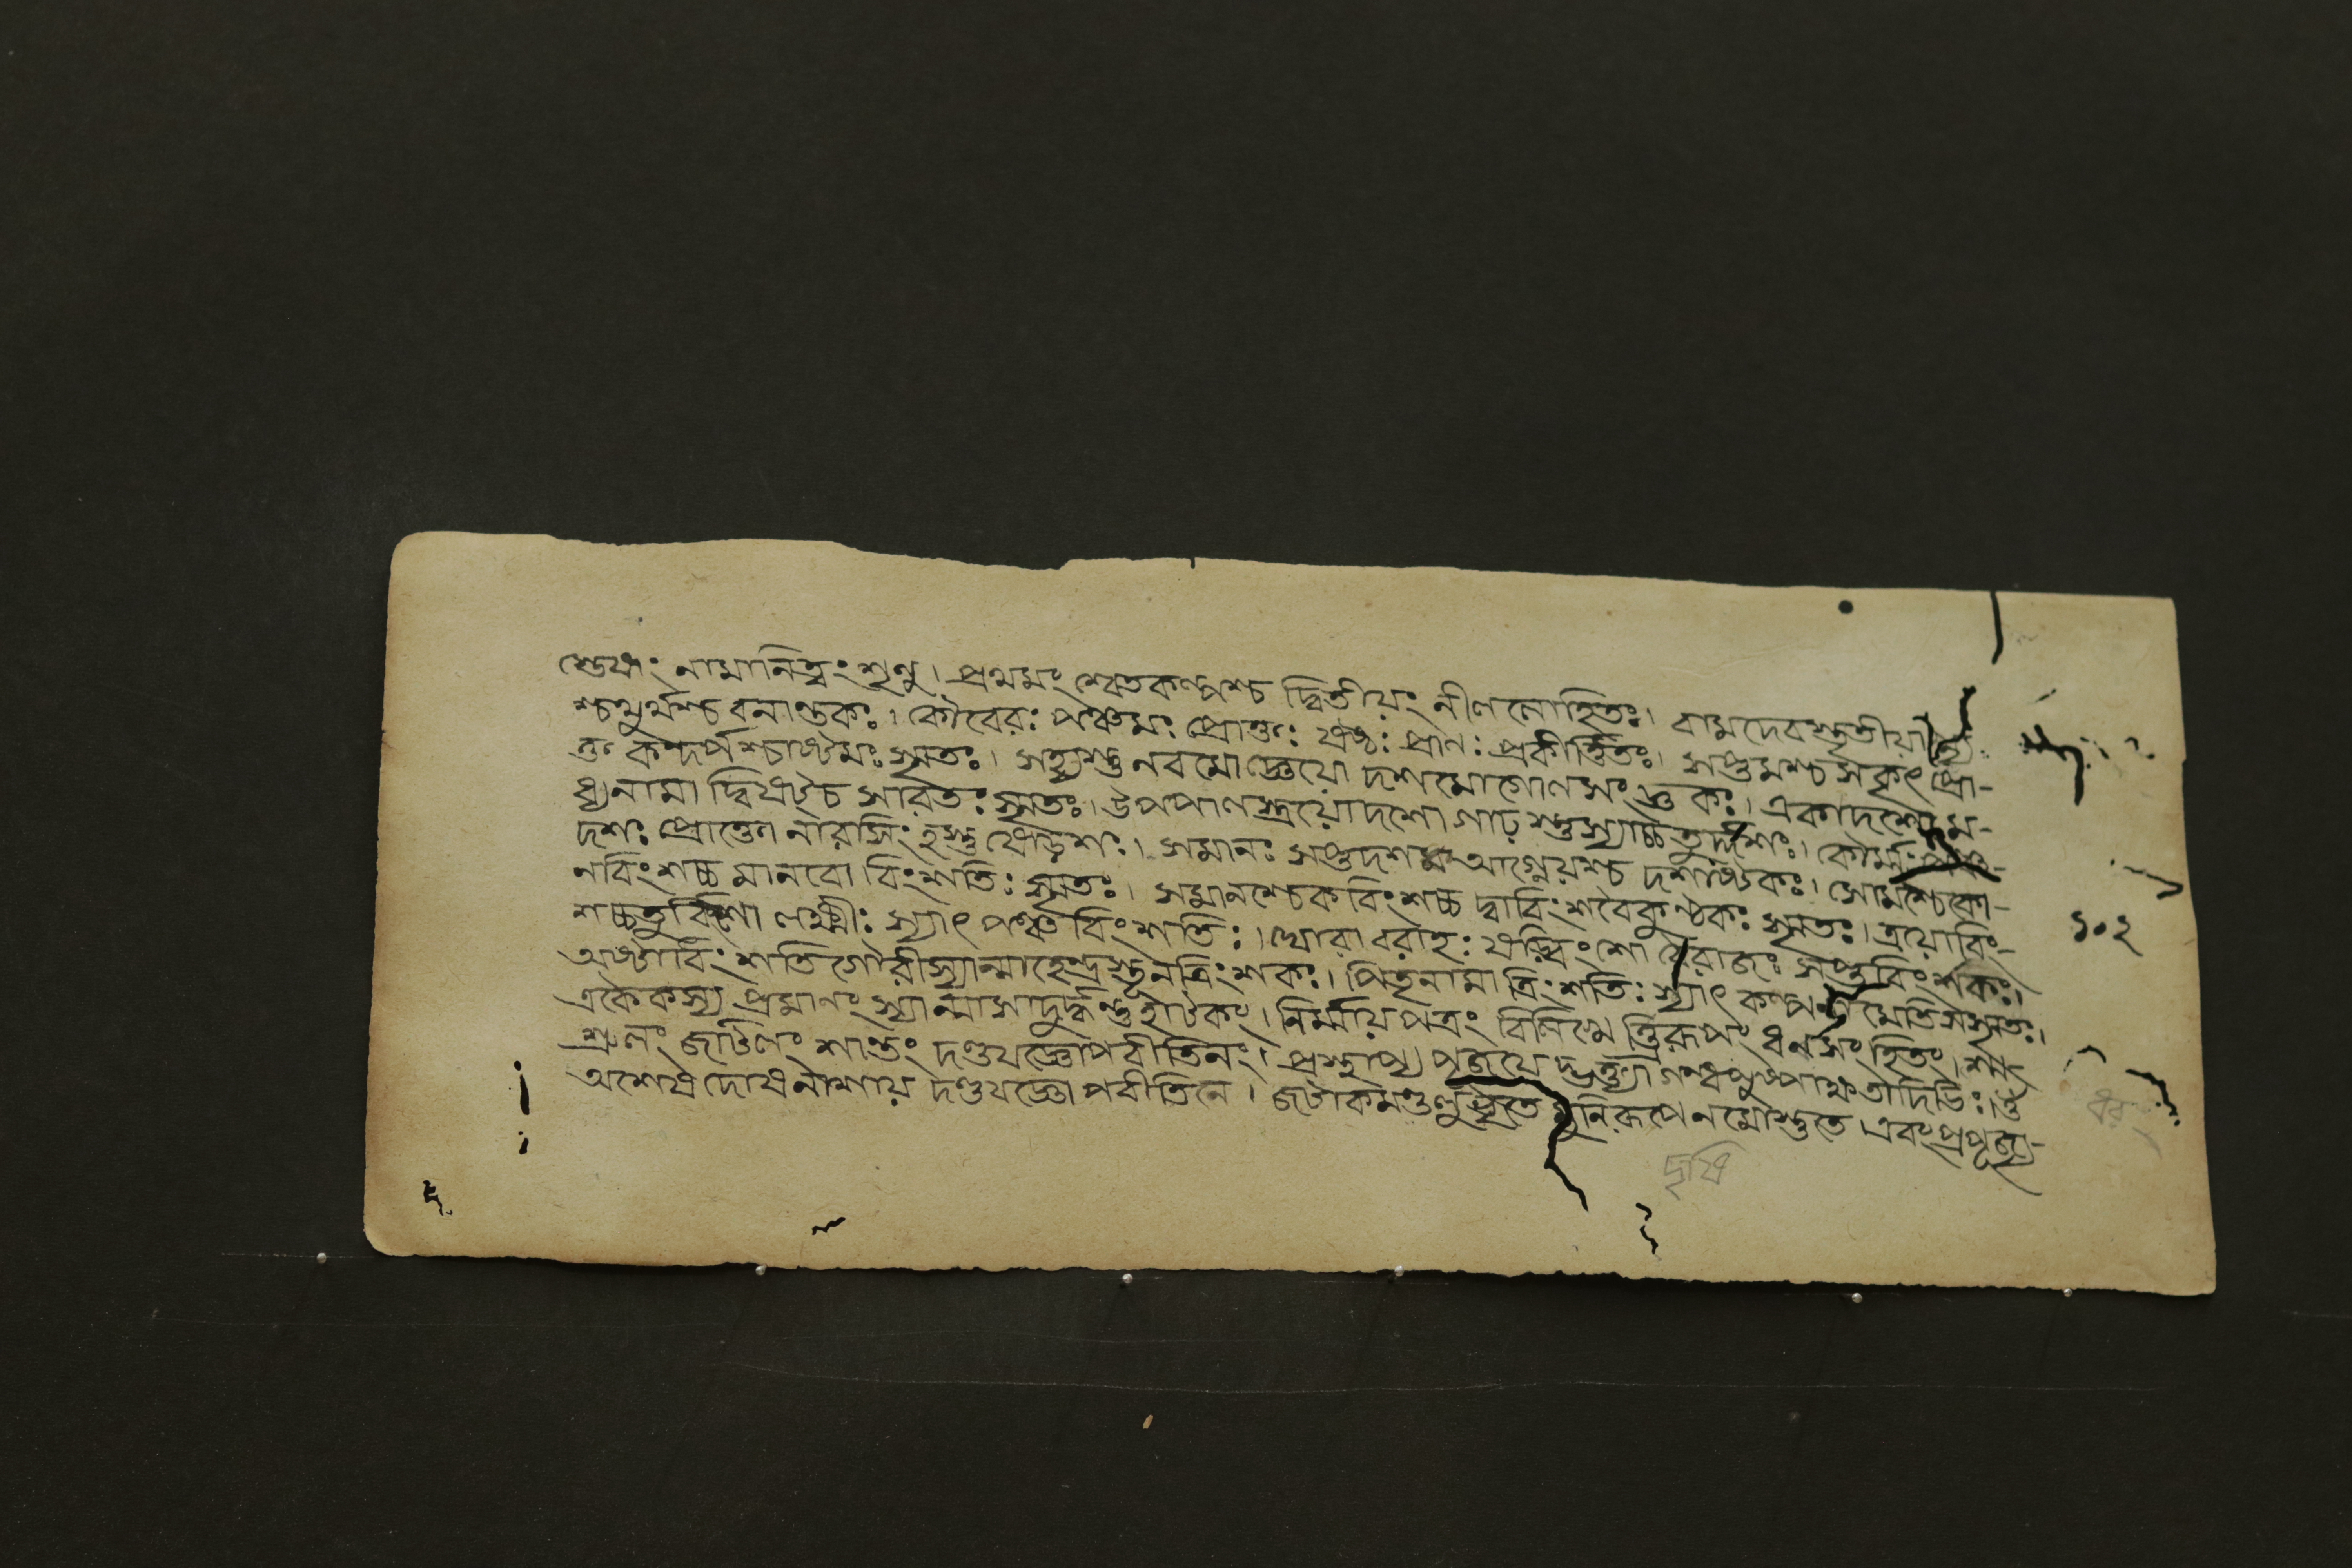 শ্তেষাং নামানিত্বং শৃণু। প্রথমং শ্বেতকল্পশ্চ দ্বিতীয়ং নীললোহিতঃ। বামদেবস্তৃতীয়
শ্চতুর্থশ্চ বনান্তকঃ। কৌবেরঃ পঞ্চমঃ প্রোক্তঃ ষষ্ঠঃ প্রাণঃ প্রকীর্ত্তিতঃ। সপ্তমশ্চ সকৃৎ প্রো-
ক্ত কন্দর্পশ্চাষ্টমঃ স্মৃতঃ। সহ্যস্তু নবমো জ্ঞেয়ো দশমোগোণসং শুকঃ। একাদশো ম-
ধ্যনামা দ্বিষট্চ সাবিতঃ স্মৃতঃ। উপপাণস্ত্রয়োদশো গাঢ় স্তুস্যাচ্চতুর্দ্দশঃ। কৌর্ম্মঃ পঞ্চ-
দশঃ প্রোক্তো নারসিংহস্তু ষোড়শঃ। সমানঃ সপ্তদশম আগ্নেয়শ্চ দশাষ্টকঃ। সোমশ্চৈকো-
নবিংশচ্চ মানবো বিংশতিঃ স্মৃতঃ। সমানশ্চেকবিংশচ্চ দ্বাবিংশবৈকুণ্ঠকঃ স্মৃতঃ। ত্রয়োবিং-
শচ্চতুর্বিংশো লক্ষ্মীঃ স্যাৎ পঞ্চবিংশতিঃ। ঘোরা বরাহঃ ষড়্বিংশো বৈরাজঃ সপ্তবিংশকঃ।
অষ্টাবিংশতি গৌরীস্যান্মাহেন্দ্রস্তূনত্রিংশকঃ। পিতৃনামা ত্রিংশতিঃ স্যাৎ কল্প মেতি স্মৃতঃ।
একৈকস্য প্রমাণং স্যান্মাসাদুর্দ্ধন্তু হাটকং। নির্ম্মায়পত্রং বিলিখে ত্ত্রিরূপং ধর্ন্মসংহিতং। শ্ম
শ্রুলং জটিলং শান্তং দণ্ডযজ্ঞোপবীতিনং। প্রস্থাপ্য পূজয়ে দ্ভক্ত্যা গন্ধপুষ্পাক্ষতাদিভিঃ। ওঁ
অশেষদোষনাশায় দণ্ডযজ্ঞোপবীতিনে। জটাকমণ্ডলুধৃতে মুনিরূপে নমোস্তুতে। এবং প্রপূজ্য-
১০২